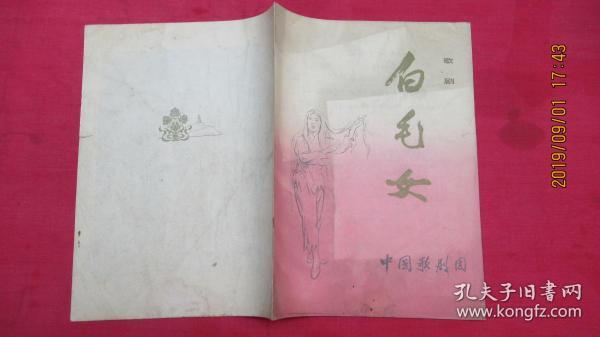 歌剧
白毛女
中国歌剧团
2019/09/01 17:43
孔夫子旧书网
www.kongfz.com